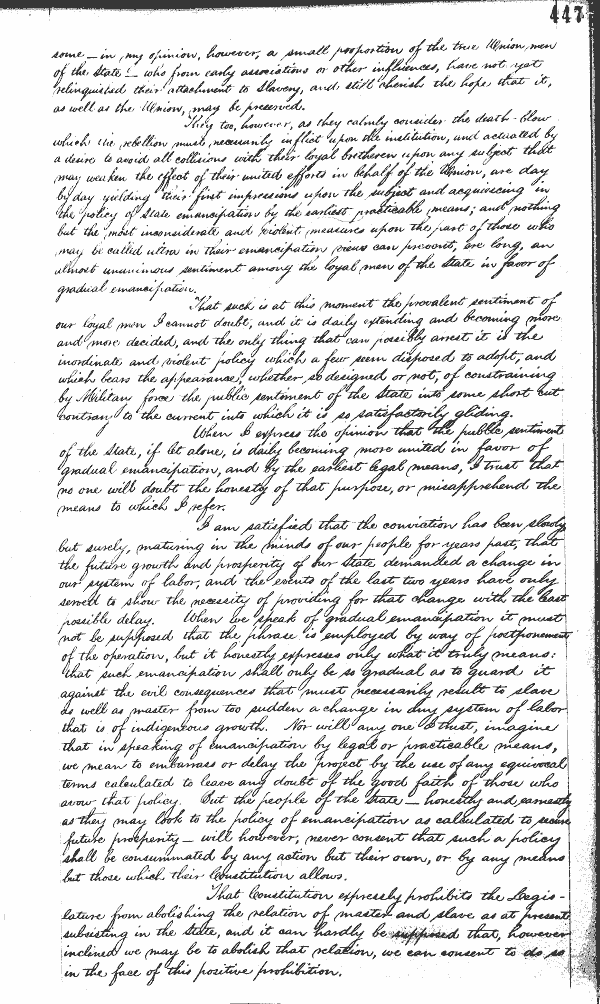 447
some — in my opinion, however, a small proportion of the true Union men
of the State — who from early associations or other influences, have not yet
relinquished their attachment to Slavery, and still cherish the hope that it,
as well as the Union, may be preserved.
They too, however, as they calmly consider the death-blow
which the rebellion must necessarily inflict upon the institution, and actuated by
a desire to avoid all collisions with their loyal bretheren upon any subject that
may weaken the effect of their united efforts in behalf of the Union, are day
by day yielding their first impressions upon the subject and acquiescing in
the policy of State emancipation by the earliest practicable means; and nothing
but the most inconsiderate and violent measures upon the part of those who
may be called ultra in their emancipation views can prevent, ere long, an
almost unanimous sentiment among the loyal men of the State in favor of
gradual emancipation.
That such is at this moment the prevalent sentiment of
our loyal men I cannot doubt, and it is daily extending and becoming more
and more decided, and the only thing that can possibly arrest it is the
inordinate and violent policy which a few seem disposed to adopt, and
which bears the appearance, whether so designed or not, of constraining
by Military force the public sentiment of the State into some short cut
contrary to the current into which it is so satisfactorily gliding.
When I express the opinion that the public sentiment
of the State, if let alone, is daily becoming more united in favor of
gradual emancipation, and by the earliest legal means, I trust that
no one will doubt the honesty of that purpose, or misapprehend the
means to which I refer.
I am satisfied that the conviction has been slowly,
but surely, maturing in the minds of our people for years past, that
the future growth and prosperity of our State demanded a change in
our system of labor, and the events of the last two years have only
served to show the necessity of providing for that change with the least
possible delay. When we speak of gradual emancipation it must
not be supposed that the phrase is employed by way of postponement
of the operation, but it honestly expresses only what it truly means:
that such emancipation shall only be so gradual as to guard it
against the evil consequences that must necessarily result to slave
as well as master from too sudden a change in any system of labor
that is of indigenous growth. Nor will any one I trust, imagine
that in speaking of emancipation by legal or practicable means,
we mean to embarrass or delay the project by the use of any equivocal
terms calculated to leave any doubt of the good faith of those who
avow that policy. But the people of the State — honestly and earnestly
as they may look to the policy of emancipation as calculated to secure
future prosperity — will however, never consent that such a policy
shall be consummated by any action but their own, or by any means
but those which their Constitution allows.
That Constitution expressly prohibits the Legis-
lature from abolishing the relation of master and slave as at present
subsisting in the State, and it can hardly be supposed that, however
inclined we may be to abolish that relation, we can consent to do so
in the face of this positive prohibition.